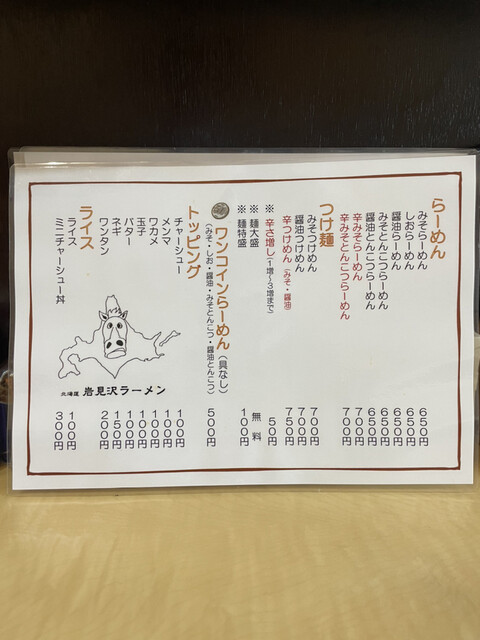 らーめん
みそらーめん 650円
しおらーめん 650円
醤油らーめん 650円
みそとんこつらーめん 650円
醤油とんこつらーめん 650円
辛みそらーめん 700円
辛みそとんこつらーめん 700円
つけ麺
みそつけめん 700円
醤油つけめん 700円
辛つけめん（みそ・醤油） 750円
※ 辛さ増し（1増〜3増まで） 50円
※ 麺大盛 無料
※ 麺特盛 100円
ワンコインらーめん（具なし） 500円
（みそ・しお・醤油・みそとんこつ・醤油とんこつ）
トッピング
チャーシュー 100円
メンマ 100円
ワカメ 100円
玉子 100円
バター 100円
ネギ 150円
ワンタン 200円
ライス
ライス 100円
ミニチャーシュー丼 300円
北海道 岩見沢ラーメン